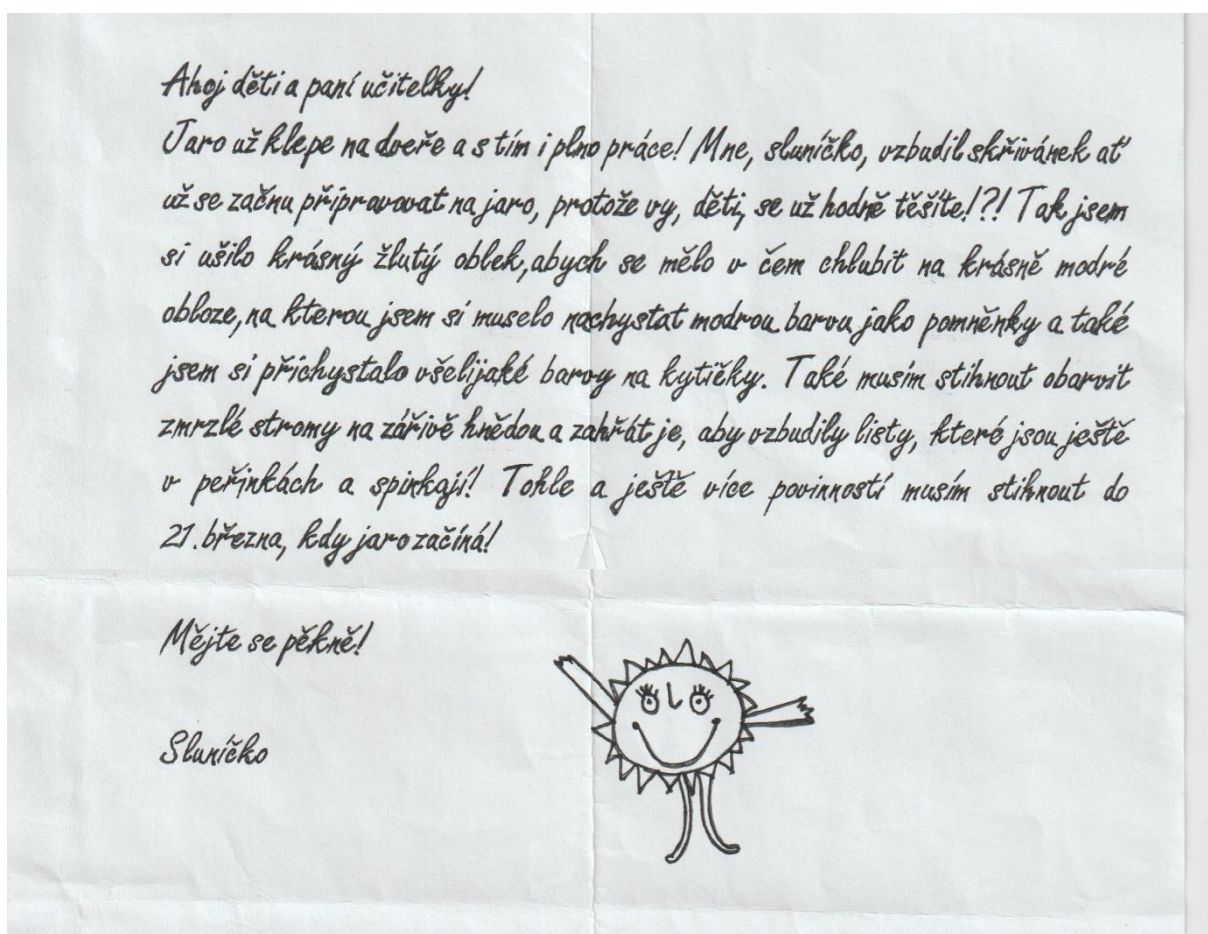 Ahoj děti a paní učitelky!
Jaro už klepe na dveře a s tím i plno práce! Mne, sluníčko, vzbudil skřivánek ať
už se začnu připravovat na jaro, protože vy, děti, se už hodně těšíte!?! Tak jsem
si ušilo krásný žlutý oblek, abych se mělo v čem chlubit na krásně modré
obloze, na kterou jsem si muselo nachystat modrou barvu jako pomněnky a také
jsem si přichystalo všelijaké barvy na kytičky. Také musím stihnout obarvit
zmrzlé stromy na zářivě hnědou a zahřát je, aby vzbudily listy, které jsou ještě
v peřinkách a spinkají! Tohle a ještě více povinností musím stihnout do
21. března, kdy jaro začíná!
Mějte se pěkně!
Sluníčko